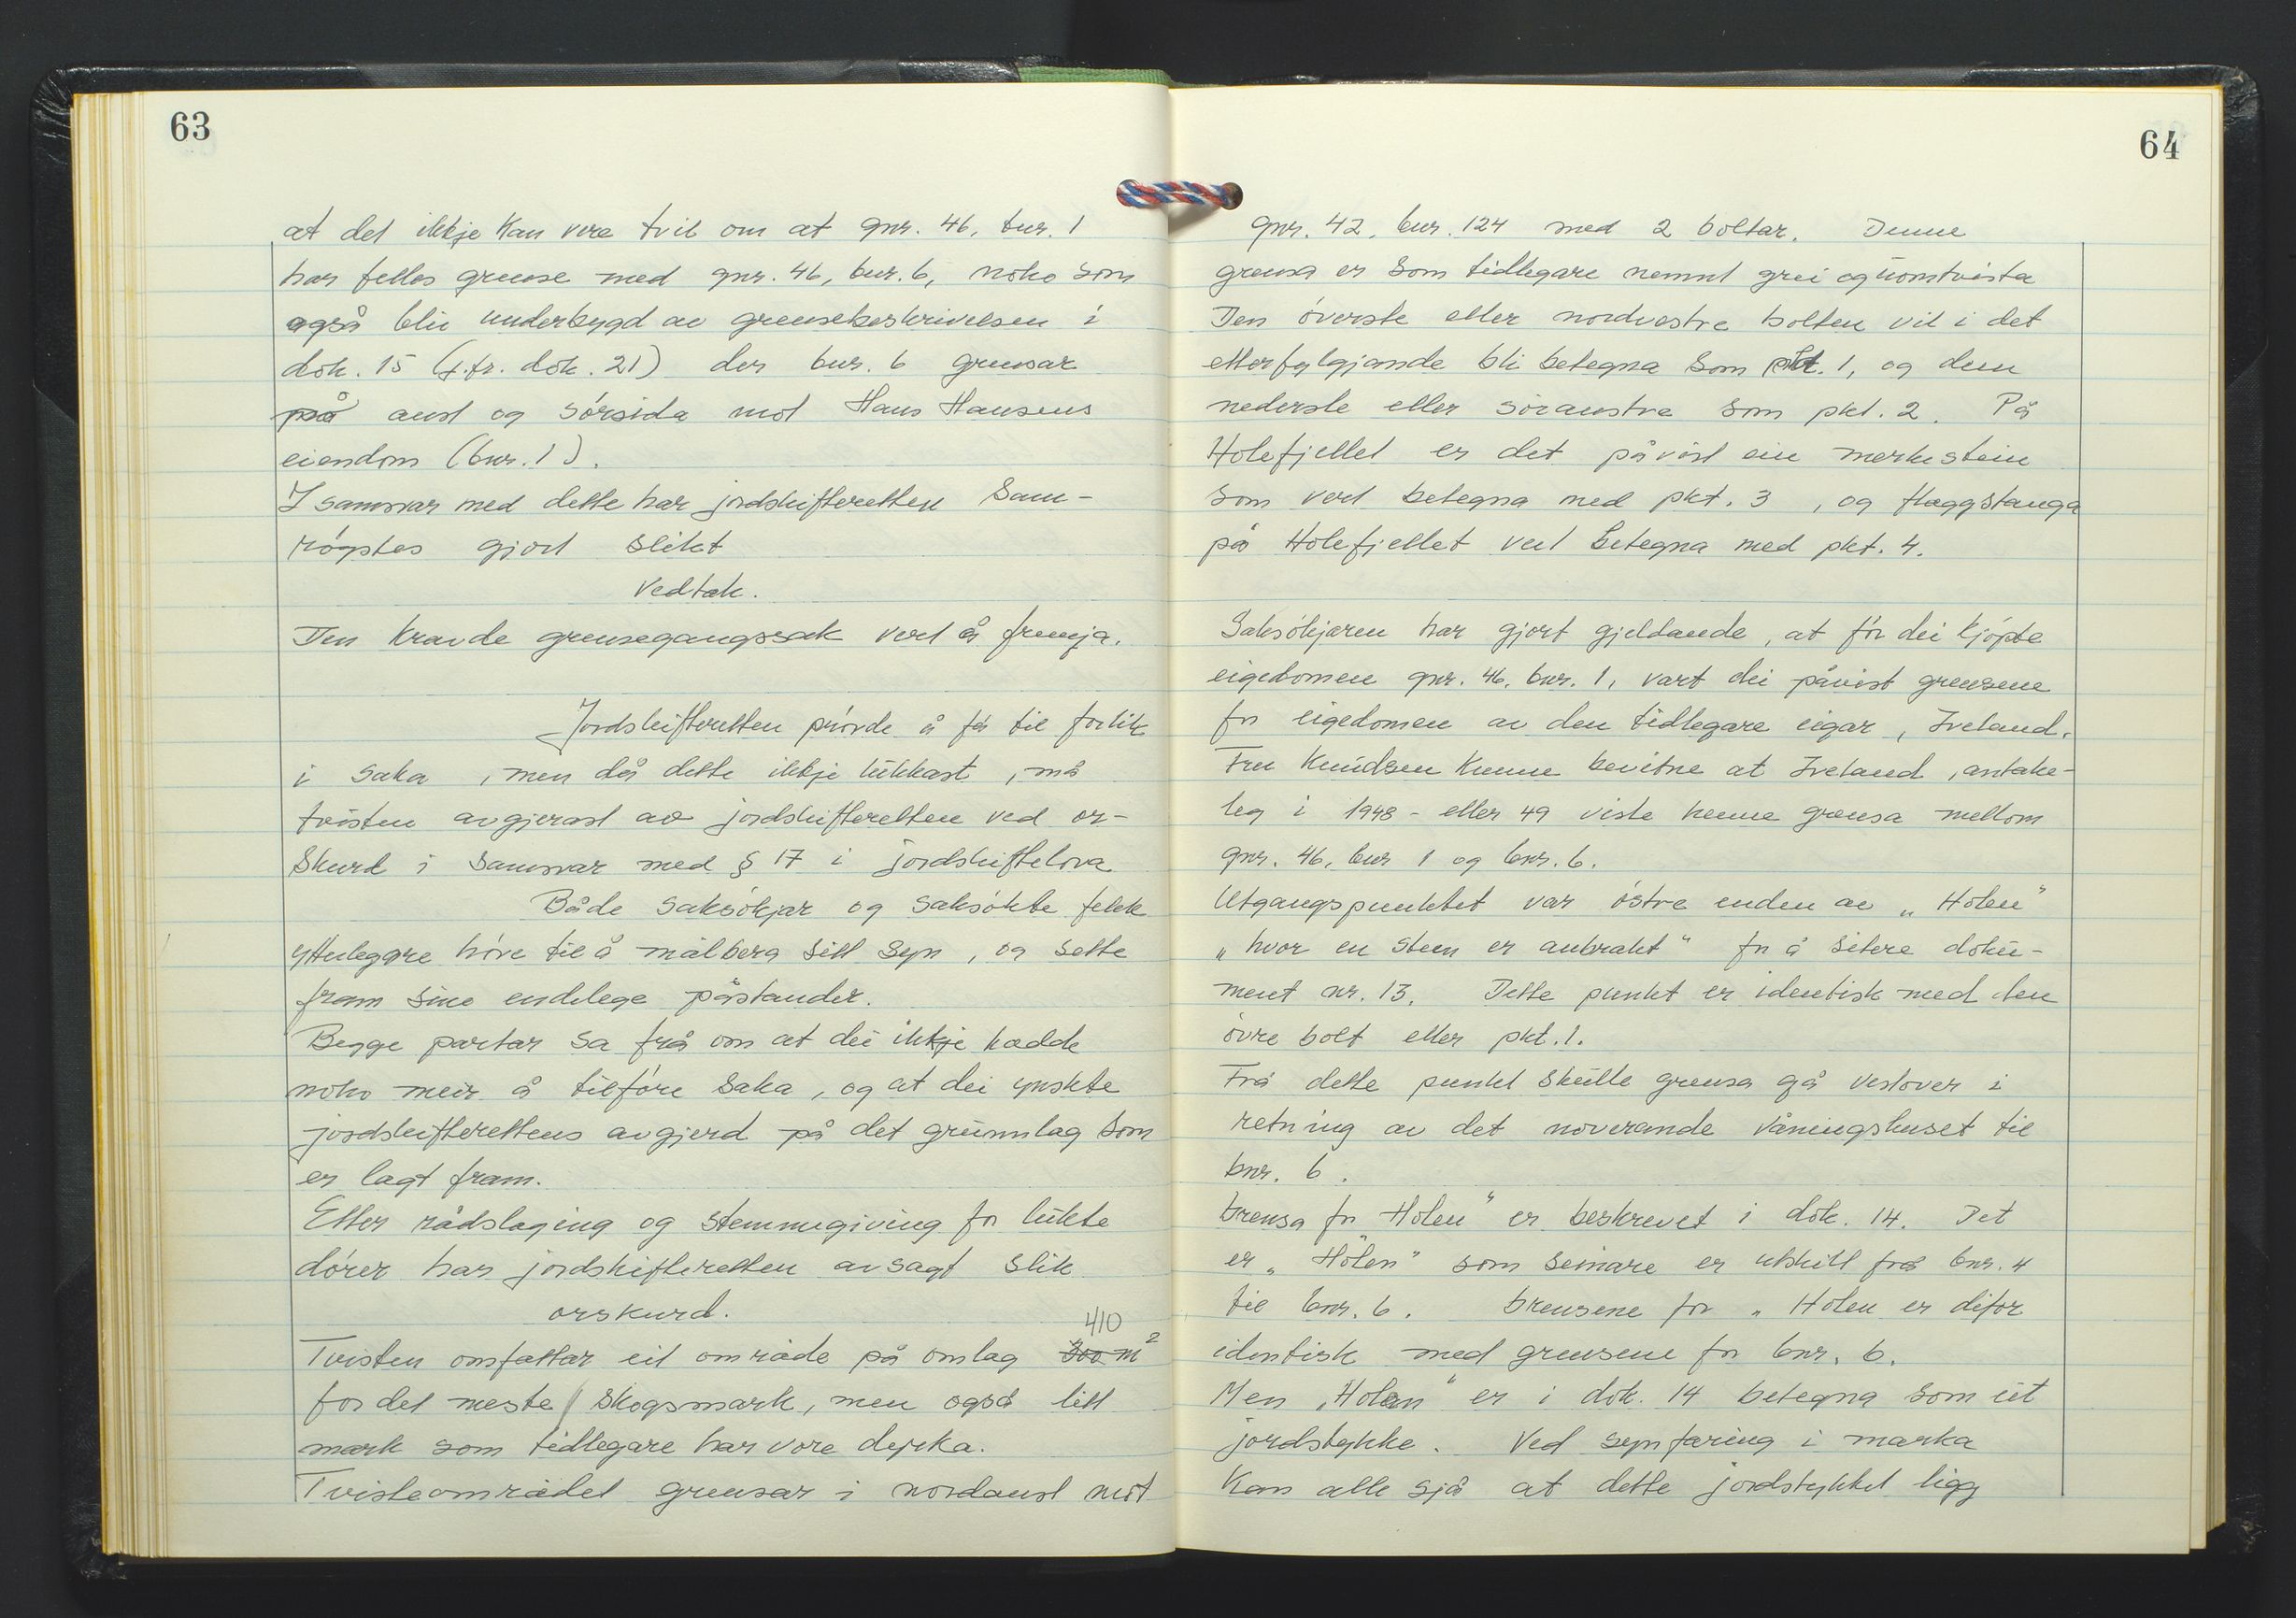 63
at det ikkje kan vere tvil om at gnr. 46, bnr. 1
har felles grense med gnr. 46, bnr. 6, noko som
også blir underbygd av grensebeskrivelsen i
dok. 15 (j.fr. dok. 21) der bnr. 6 grensar
på aust og sørsida mot Hans Hansens
eiendom (bnr. 1).
I samsvar med dette har jordskifteretten sam-
røystes gjort slikt
Vedtak.
Den kravde grensegangssak vert å fremja.
Jordskifteretten prøvde å få til forlik
i saka, men då dette ikkje lukkast, må
tvisten avgjerast av jordskifteretten ved or-
skurd i samsvar med § 17 i jordskiftelova
Både saksøkjar og saksøkte fekk
ytterlegare høve til å målbera sitt syn, og sette
fram sine endelege påstander.
Begge partar sa frå om at dei ikkje hadde
noko meir å tilføre saka, og at dei ynskte
jordskifterettens avgjerd på det grunnlag som
er lagt fram.
Etter rådslaging og stemmegiving for lukte
dører har jordskifteretten avsagt slik
orskurd.
410
Tvisten omfattar eit område på omlag 300 m²
for det meste skogsmark, men også litt
mark som tidlegare har vore dyrka.
Tvisteområdet grensar i nordaust mot
64
gnr. 42, bnr. 124 med 2 boltar. Denne
grensa er som tidlegare nemnt grei og uomtvista
Den øverste eller nordvestre bolten vil i det
etterfylgjande bli betegna som pkt. 1, og den
nederste eller søraustre som pkt. 2. På
Holefjellet er det påvist ein merkestein
som vert betegna med pkt. 3, og flaggstanga
på Holefjellet vert betegna med pkt. 4.
Saksøkjaren har gjort gjeldande, at før dei kjøpte
eigedomen gnr. 46, bnr. 1, vart dei påvist grensene
for eigedomen av den tidlegare eigar, Iveland.
Fru Knudsen kunne bevitne at Iveland, antake-
leg i 1948 - eller 49 viste henne grensa mellom
gnr. 46, bnr 1 og bnr. 6.
Utgangspunktet var østre enden av „Holen"
„hvor en steen er anbrakt" for å sitere doku-
ment nr. 13. Dette punkt er identisk med den
øvre bolt eller pkt. 1.
Frå dette punkt skulle grensa gå vestover i
retning av det noverande våningshuset til
bnr. 6.
Grensa for Holen" er beskrevet i dok. 14. Det
er „Holen" som seinare er utskilt frå bnr. 4
til bnr. 6. Grensene for „Holen er difor
identisk med grensene for bnr. 6.
Men „Holen" er i dok. 14 betegna som eit
jordstykke. Ved synfaring i marka
kan alle sjå at dette jordstykket ligg